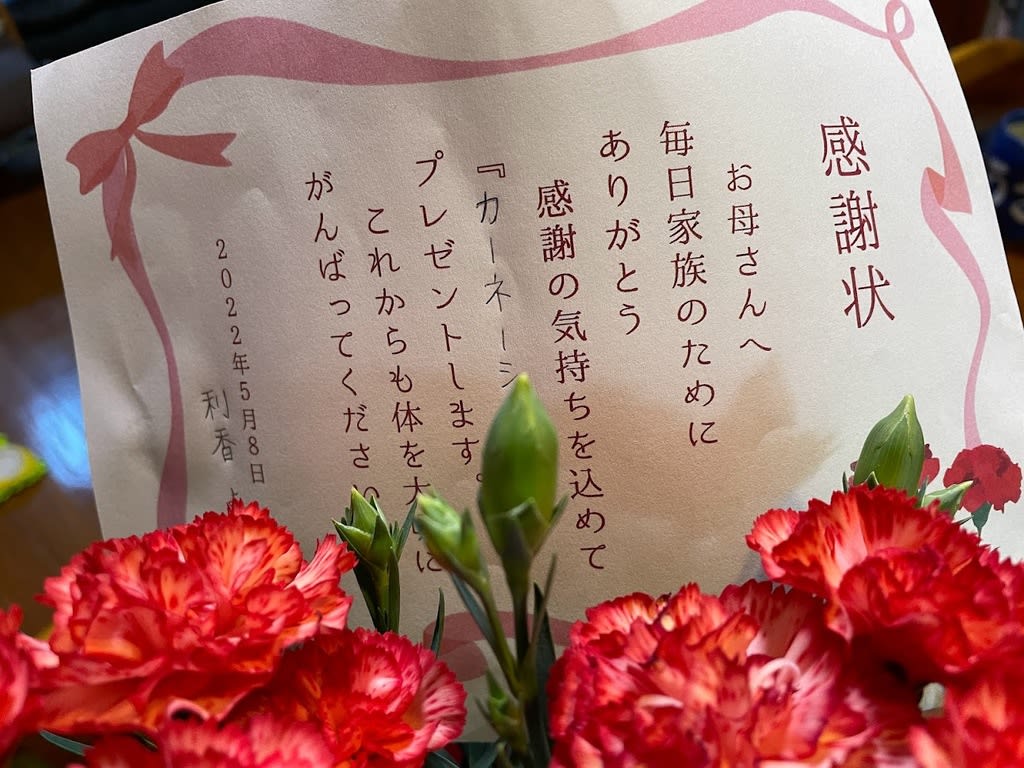 感謝状
お母さんへ
毎日家族のために
ありがとう
感謝の気持ちを込めて
『カーネーシ
プレゼントします。
これからも体を大 に
がんばってください
2022年5月8日
利香